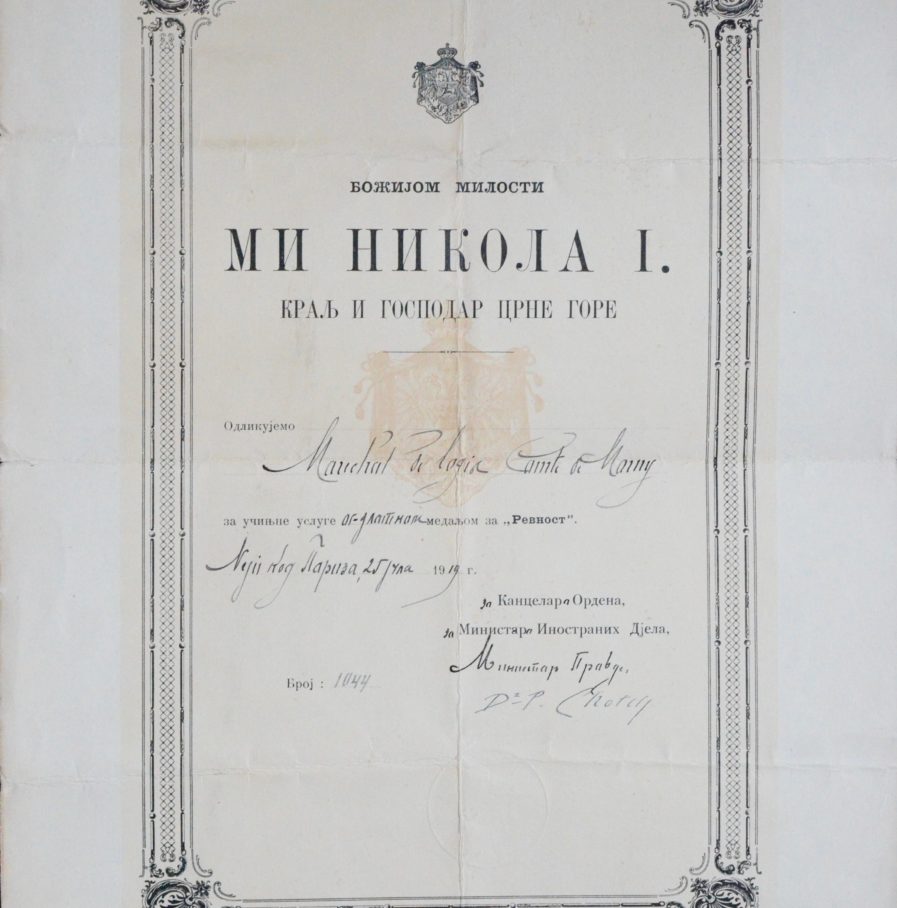 БОЖИЈОМ МИЛОСТИ
МИ НИКОЛА I.
КРАЉ И ГОСПОДАР ЦРНЕ ГОРЕ
Одликујемо
Maréchal de logis Comte de Morny
за учињне услуге медаљом за „Ревност".
Неји код Париза, 25 јула 1919 г.
за Канцелара Ордена,
за Министара Иностраних Дјела,
Министар Правде,
Број : 1044
Dr P.